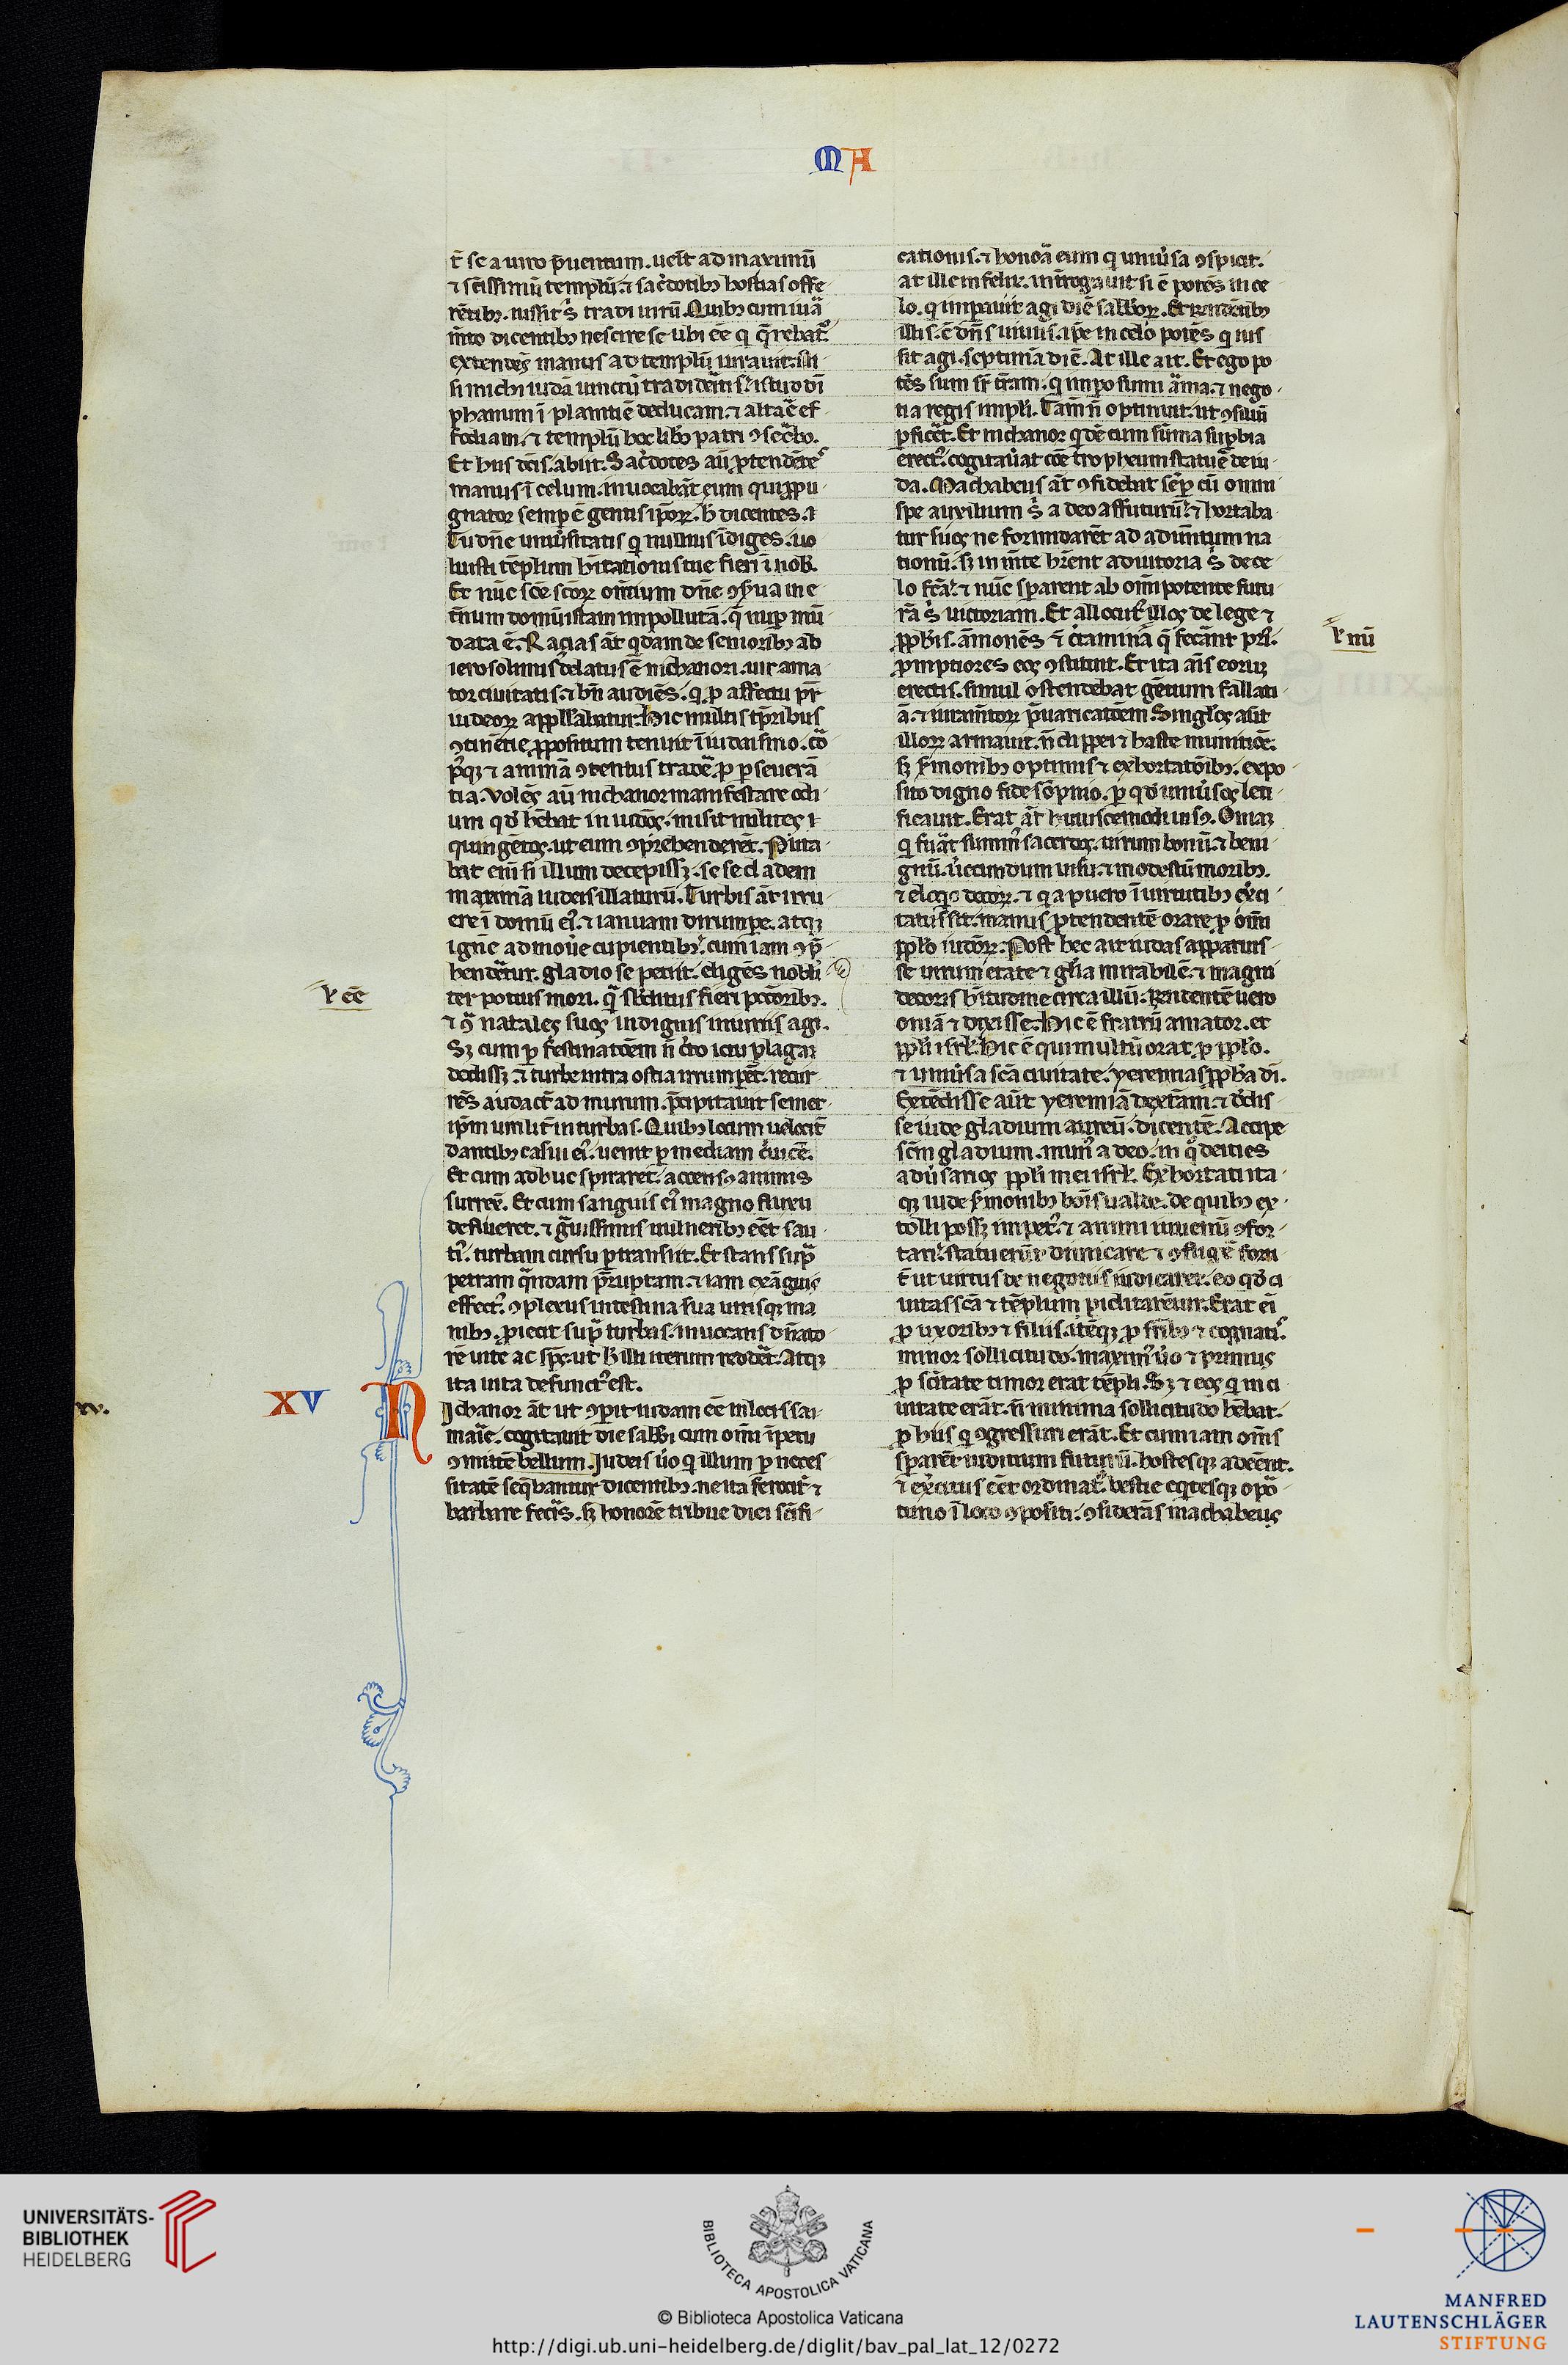 MA
t̄ se a uiro p̄uentum. uēit ad maximū
⁊ sc̄issimū templū. ⁊ sac̓dotibꝰ hostias offe
rētibꝰ. iussit s̓ tradi uirū. Quibꝰ cum iura
m̄to dicentibꝰ nescire se ubi ēē q̄ q̄rebat᷑.
extendēs manus ad templū iurauit. Ni
si michi iudā uinctū tradideritis istud di
phanum ī planitiē deducam. ⁊ altare ef
fodiam. ⁊ templū hoc libo patri ꝯsecrabo.
Et hiis dc̄is. abiit. Sac̓dotes aū ꝓtendētes
manus ī celum. inuocabāt eum qui ꝓpu
gnator semp̄ ē gentis ip̄oꝝ. h̄ dicentes.
Tu dn̄e uniu̓sitatis q̄ nullius īdiges. uo
luisti tēplum hītationis tue fieri ī nob̄.
Et nūc sc̄e sc̄oꝝ om̄ium dn̄e ꝯserua in e
t̄num domū istam impollutā. q̄ nuꝑ mū
data ē. Racias āt q̄dam de senioribꝰ ab
ierosolimis delatus ē nichanori. uir ama
tor ciuitatis. ⁊ bn̄ audiēs. q̄ ꝓ affectu pr̄
iudeoꝝ appellabatur. Hic multis tp̄ribus
ꝯtinētie ꝓpositum tenuit ī iudaismo. cor
p̄qꝫ ⁊ animā ꝯtentus tradere ꝓ ꝑseuerā
tia. Volēs aū nichanor manifestare odi
um qd̓ hēbat in iudeos. misit milites
quingētos. ut eum ꝯprehenderēt. Puta
bat eni si illum decepissꝫ. se se cladem
maximā iudeis illaturū. Turbis āt irru
ere ī domū ei᷑. ⁊ ianuam dirumpe. atqꝫ
ignē admoue cupientibꝰ. cum iam ꝯp̄
henderetur. gladio se petiit. eligēs nobili
ter potius mori. q̄ sb̓ditus fieri pctōribꝰ.
⁊ ꝯ̄ natales suos indignis iniuriis agi.
Sꝫ cum ꝑ festinatōem n̄ c̓to ictu plagam
dedissꝫ. ⁊ turbe intra ostia irrumpēt. recur
rēs audact̄ ad murum. p̄cipitauit semet
ip̄m uirilit̄ in turbas. Quibꝰ locum uelocit̄
dantibꝰ casui ei᷑. uenit ꝑ mediam c̓uicē.
Et cum adhuc spiraret. accensꝰ animis
surrex̄. Et cum sanguis ei᷑ magno fluxu
deflueret. ⁊ g̓uissimis uulneribꝰ eēt sau
ti᷑. turbam cursu ꝑtransiit. Et stans supra
petram q̄ndam p̄ruptam. ⁊ iam exāguis
effect᷑. ꝯplexus intestina sua utrisqꝫ ma
nibꝰ. ꝓiecit supra turbas. inuocans dn̄ato
rē uite ac sp̄s. ut h̄ illi iterum redderet. Atqꝫ
ita uita defunct᷑ est.
XV
xv.
Nichanor āt ut ꝯꝑit iudam ēē in locis sa
marie. cogitauit die sabb̄i cum om̄i īpetu
ꝯmittē bellum. Iudeis ūo q̄ illum ꝑ neces
sitatē seq̄bantur dicentibꝰ. ne ita ferocit̄ ⁊
barbare fecis. sꝫ honorē tribue diei sc̄ifi
ꝟ eē
cationis. ⁊ honora eum q̄ uniu̓sa ꝯspicit.
At ille infelix. introgauit si ē potēs in ce
lo. q̄ imꝑauit agi diē sabb̄oꝝ. Et rn̄dētibꝰ
illis. ē dn̄s uiuus. ip̄e in celo potēs q̄ ius
sit agi septimā diē. At ille ait. Et ego po
tēs sum sr̄ t̄ram. q̄ impo sumi arma. ⁊ nego
tia regis impli. Tam̄ n̄ optinuit. ut ꝯsiliū
ꝑficeret. Et nichanor q̄dē cum summa suꝑbia
erect᷑. cogitauat cōe tropheum statue de iu
da. Machabeus āt ꝯfidebat sēꝑ cū omni
spe auxilium s̓ a deo affuturū. ⁊ hortaba
tur suos ne formidarēt ad aduētum na
tionū. sꝫ in mēte hr̄ent adiutoria s̓ de ce
lo fc̄a. ⁊ nūc sꝑarent ab om̄ipotente futu
rā s̓ uictoriam. Et allocut᷑ illos de lege ⁊
ꝓphis. āmonēs ⁊ c̓taminā q̄ fecant pri᷑.
ꝓmptiores eos ꝯstituit. Et ita aīs eorum
erectis. simul ostendebat gētium fallaci
ā. ⁊ iuramētoꝝ p̄uaricatōem. Singlos aūt
illoꝝ armauit. n̄ clippei ⁊ haste munitiōe.
sꝫ s̓monibꝰ optimis ⁊ exhortatōibꝰ. expo
sito digno fide sōpnio. ꝑ qd̓ uniu̓sos leti
ficauit. Erat āt huiuscemodi uisꝰ. Oniaꝫ
q̄ fuat summ᷑ sacerdos. uirum bonū. ⁊ beni
gnū. u̓ecundum uisu. ⁊ modestū moribꝰ.
⁊ eloqͦ decoꝝ. ⁊ q̄ a puero ī uirtutibꝰ ex̓ci
tatus sit. manus ꝓtendentē orare ꝓ om̄i
ppl̄o iudeoꝝ. Post hec aꝑuisse
se uirum etate ⁊ glīa mirabilē. ⁊ magni
decoris hītudine circa illū. Rn̄dentē uero
oniā ⁊ dixisse. Hic ē fratrū amator. et
ppl̄i isrl̄. Hic ē qui multū orat ꝓ ppl̄o.
⁊ uniu̓sa sc̄a ciuitate. yeremias ꝓpha di.
Extēdisse aūt yeremiā dextam. ⁊ dedis
se iude gladium aureū. dicentē. Accipe
sc̄m gladium. mun᷑ a deo. in qͦ deicies
adu̓sarios ppl̄i mei isrl̄. Exhortati ita
qꝫ iude s̓monibꝰ bōis ualde. de quibꝰ ex
tolli possꝫ impet᷑. ⁊ animi iuuenū ꝯfor
tari. statuerūt dimicare ⁊ ꝯflige forti
t̄ ut uirtus de negotiis iudicaret. eo qd̓ ci
uitas sc̄a ⁊ tēplum ꝑiclitarētur. Erat ei
ꝓ uxoribꝰ ⁊ filiis. itēqꝫ ꝓ fr̄ibꝰ ⁊ cognatis
minor sollicitudo. maxim᷑ ūo ⁊ primus
ꝓ sc̄itate timor erat tēpli. Sꝫ ⁊ eos q̄ in ci
uitate erāt. n̄ minima sollicitudo hēbat.
ꝓ hiis q̄ ꝯgressuri erāt. Et cum iam om̄s
sꝑarēt iuditium futurū. hostesqꝫ adeēnt.
⁊ ex̓citus eēt ordinat᷑. bestie eq̄tesqꝫ opor
tuno ī loco ꝯpositi. ꝯsiderās machabeus
ꝟ nū
UNIVERSITÄTS-
BIBLIOTHEK
HEIDELBERG
BIBLIOTECA APOSTOLICA VATICANA
© Biblioteca Apostolica Vaticana
http://digi.ub.uni-heidelberg.de/diglit/bav_pal_lat_12/0272
MANFRED
LAUTENSCHLÄGER
STIFTUNG